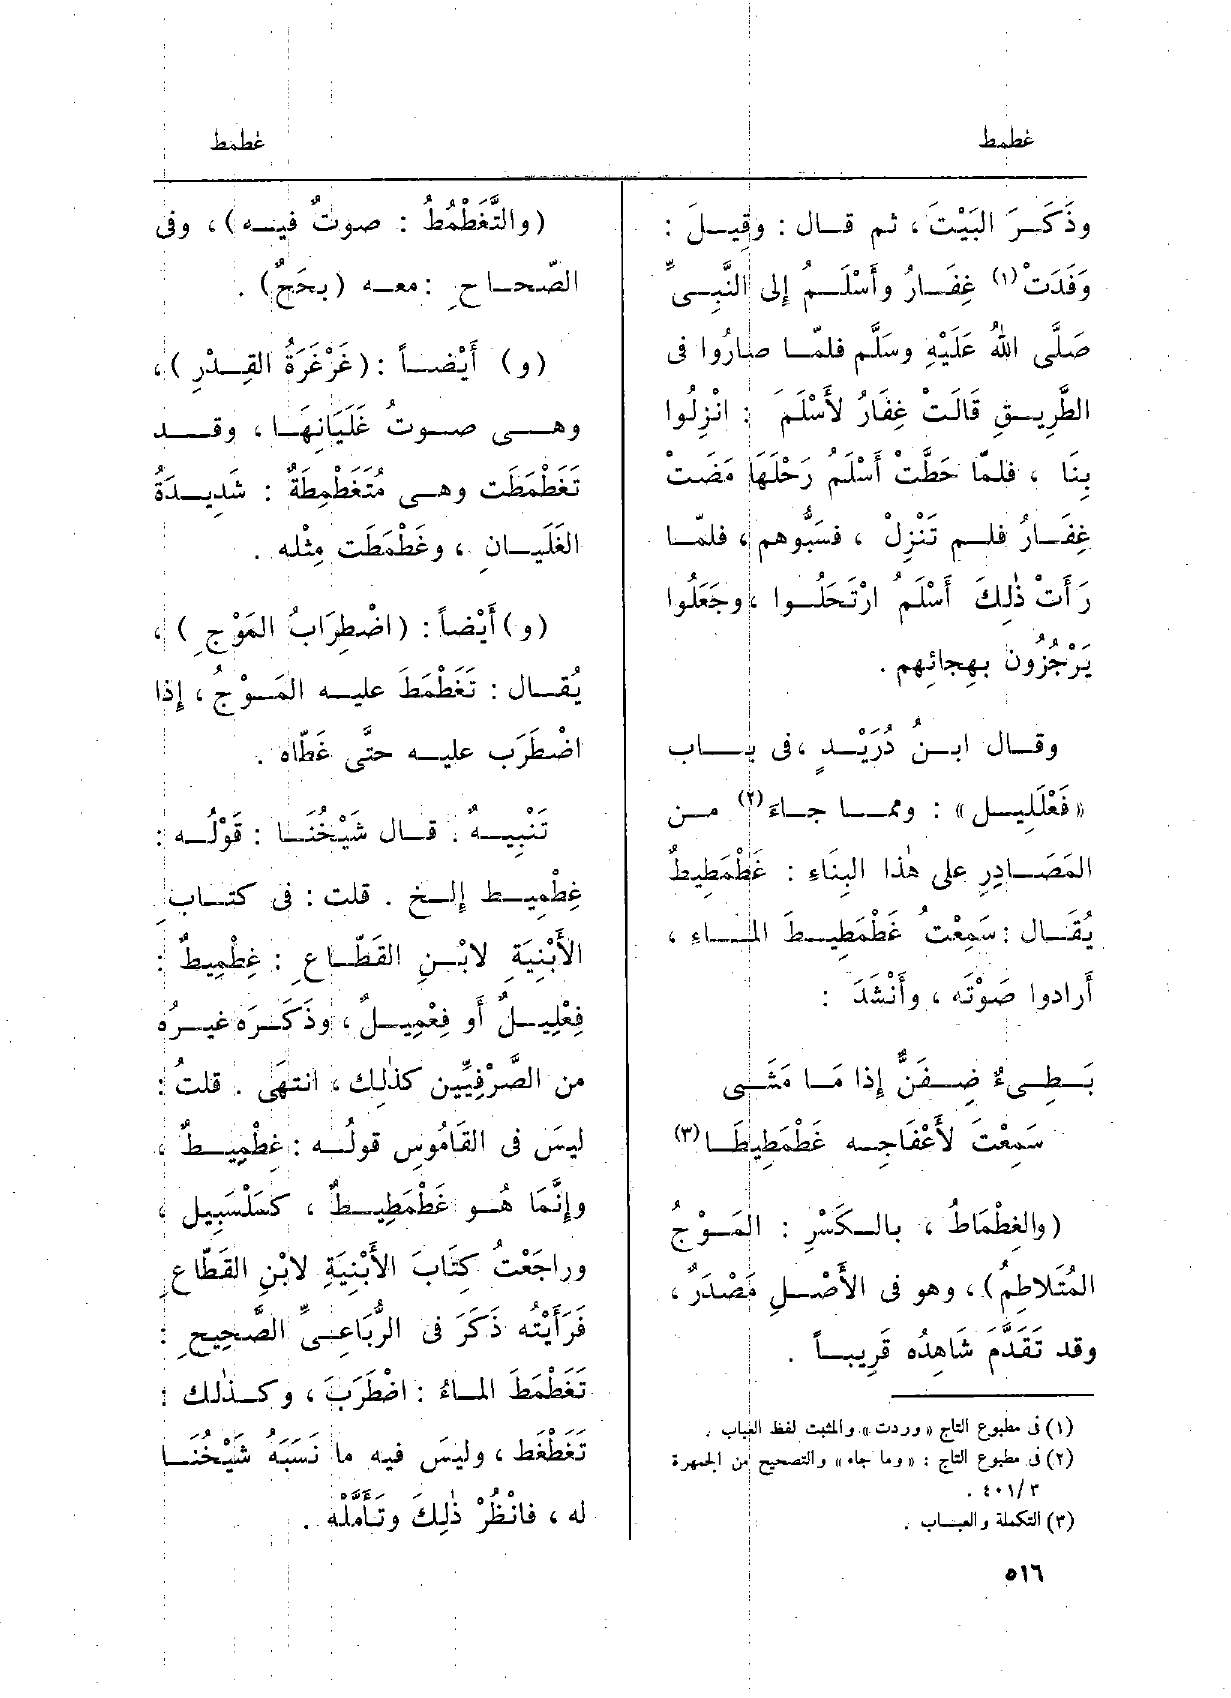 غطمط
غطمط
وذَكَرَ البَيْتَ ، ثم قال : وقِيلَ :
وَفَدَتْ (١) غِفَارُ وأَسْلَمُ إلى النَّبِىِّ
صَلَّى اللهُ عَلَيْهِ وسَلَّم فلمّا صارُوا فى
الطَّرِيقِ قَالَتْ غِفَارُ لأَسْلَمَ : انْزِلُوا
بِنَا ، فلمّا حَطَّتْ أَسْلَمُ رَحْلَهَا مَضَتْ
غِفَارُ فلم تَنْزِلْ ، فسَبُّوهم ، فلمّا
رَأَتْ ذٰلِكَ أَسْلَمُ ارْتَحَلُوا ، وجَعَلُوا
يَرْجُزُون بهِجائِهم .
وقال ابنُ دُرَيْدٍ ، فى باب
« فَعْلَلِيل » : ومما جاءَ (٢) من
المَصَادِرِ على هٰذا البِنَاءِ : غَطْمَطِيطٌ
يُقَال : سَمِعْتُ غَطْمَطِيطَ المَاءِ ،
أرادوا صَوْتَه ، وأَنْشَدَ :
بَطِىءٌ ضِفَنٌّ إذا مَا مَشَى
سَمِعْتَ لأَعْفَاجِه غَطْمَطِيطَا (٣)
(والغِطْمَاطُ ، بالكَسْرِ : المَوْجُ
المُتَلاطِمُ) ، وهو فى الأَصْلِ مَصْدَرٌ ،
وقد تَقَدَّمَ شَاهِدُه قَرِيباً .
(١) فى مطبوع التاج « وردت » والمثبت لفظ العباب .
(٢) فى مطبوع التاج : « وما جاء » والتصحيح من الجمهرة
٣/ ٤٠١ .
(٣) التكملة والعباب .
٥١٦
(والتَّغَطْمُطُ : صوتٌ فيه) ، وفى
الصّحاحِ : معه (بحَحٌ) .
(و) أَيْضاً : (غَرْغَرَةُ القِدْرِ) ،
وهى صوتُ غَلَيَانِهَا ، وقد
تَغَطْمَطَت وهى مُتَغَطْمِطَةٌ : شَدِيدَةُ
الغَلَيانِ ، وغَطْمَطَت مِثْله .
(و) أَيْضاً : (اضْطِرَابُ المَوْجِ) ،
يُقال : تَغَطْمَطَ عليه المَوْجُ ، إذا
اضْطَرَب عليه حتَّى غَطّاه .
تَنْبِيهٌ . قال شَيْخُنَا : قَوْلُه :
غِطْمِيط إلخ . قلت : فى كتابِ
الأَبْنِيَةِ لابْنِ القَطّاعِ : غِطْمِيطٌ :
فِعْلِيلٌ أو فِعْمِيلٌ ، وذَكَرَه غيرُه
من الصَّرْفِيِّين كذٰلِك ، انتهَى . قلتُ :
ليسَ فى القَامُوسِ قولُه : غِطْمِيطٌ ،
وإِنَّمَا هُو غَطْمَطِيطٌ ، كسَلْسَبِيل ،
وراجَعْتُ كِتَابَ الأَبْنِيَةِ لابْنِ القَطّاعِ
فَرَأَيْتُه ذَكَرَ فى الرُّبَاعِىِّ الصَّحِيحِ :
تَغَطْمَطَ الماءُ : اضْطَرَبَ ، وكذٰلك
تَغَطْغَط ، وليسَ فيه ما نَسَبَهُ شَيْخُنَا
له ، فانْظُرْ ذٰلِكَ وتَأَمَّلْه .